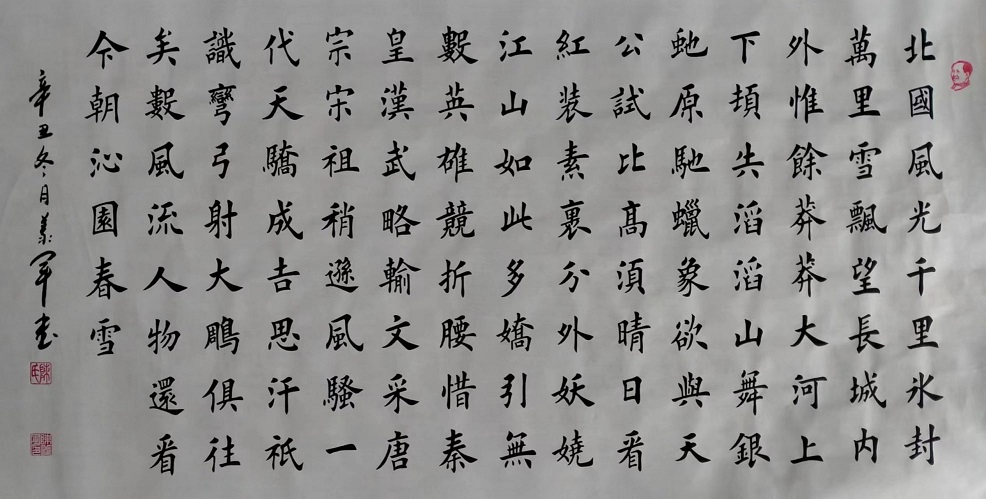 北國風光千里氷封
萬里雪飄望長城内
外惟餘莽莽大河上
下頓失滔滔山舞銀
虵原馳蠟象欲與天
公試比髙須晴日看
紅裝素裹分外妖嬈
江山如此多嬌引無
數英雄競折腰惜秦
皇漢武略輸文采唐
宗宋祖稍遜風騷一
代天驕成吉思汗祇
識彎弓射大鵰俱往
矣數風流人物還看
今朝沁園春雪
辛丑冬月義軍书